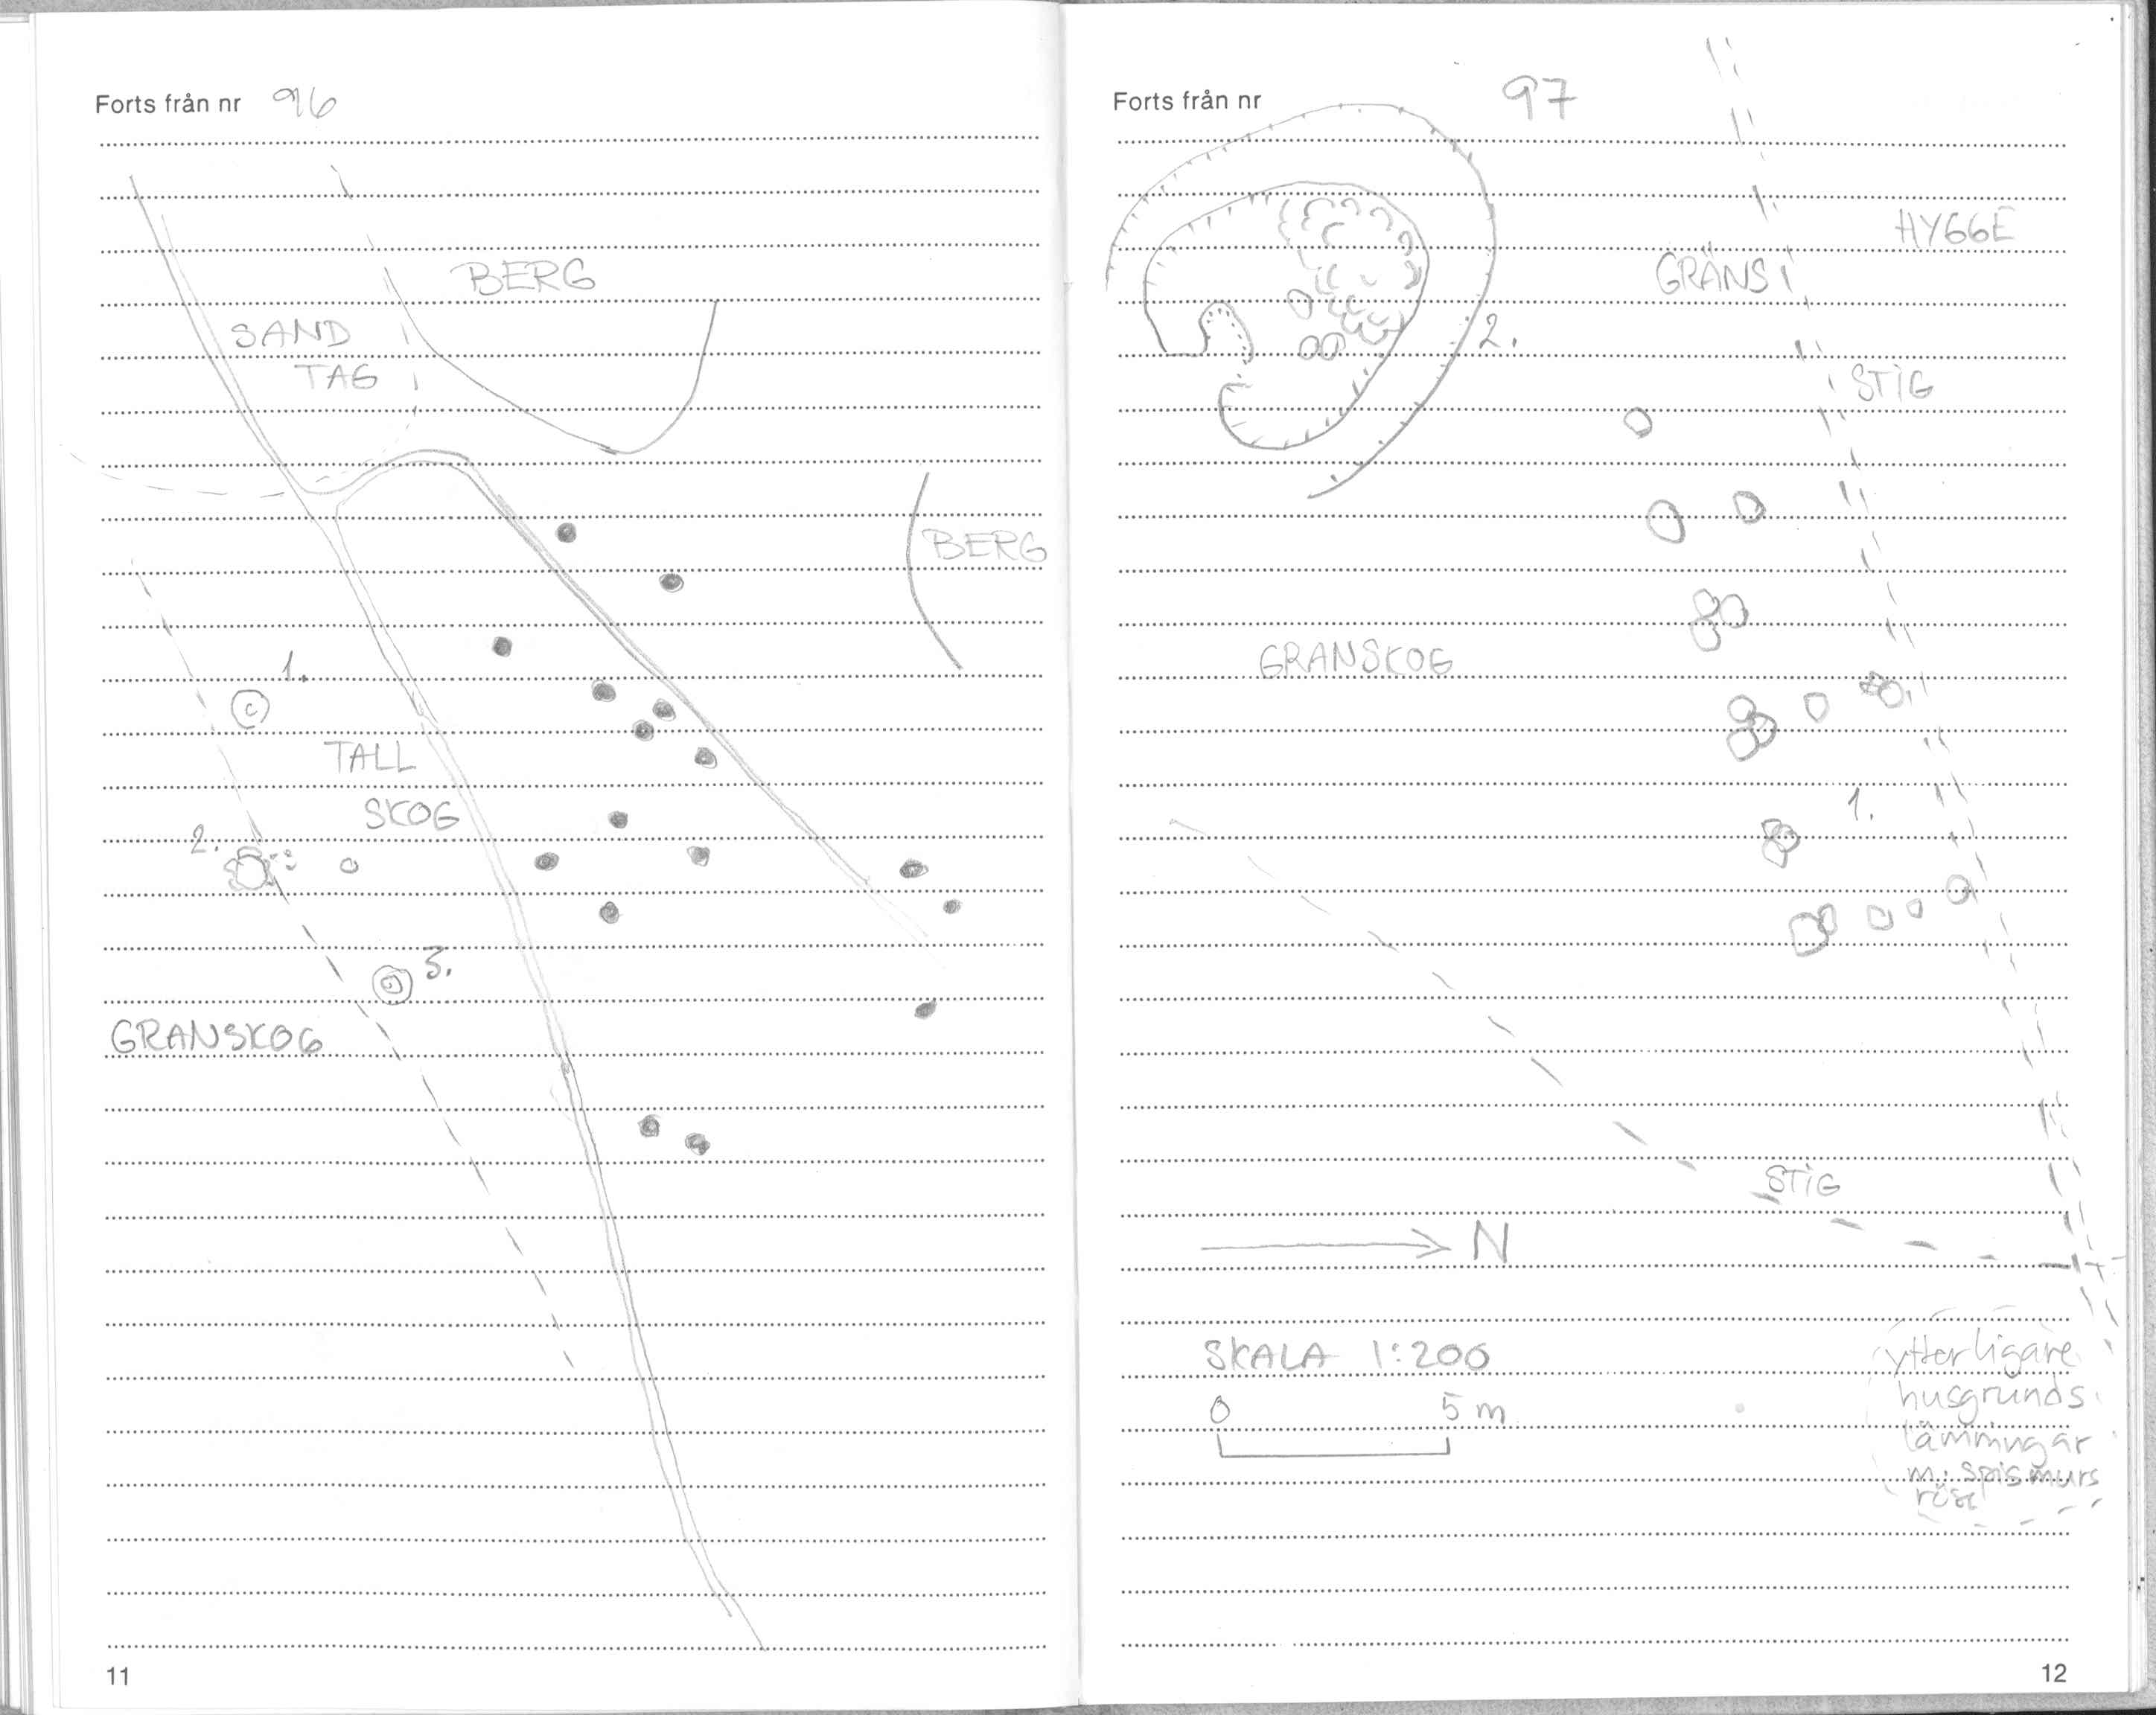 Forts från nr 96
BERG
SAND
TAG
BERG
1.
TALL
SKOG
2.
3.
GRANSKOG
11
Forts från nr 97
HYGGE
GRÄNS
2.
STIG
GRANSKOG
1.
STIG
N
SKALA 1:200
0 5 m
ytterligare
husgrunds
lämningar
m. spismurs
röse
12